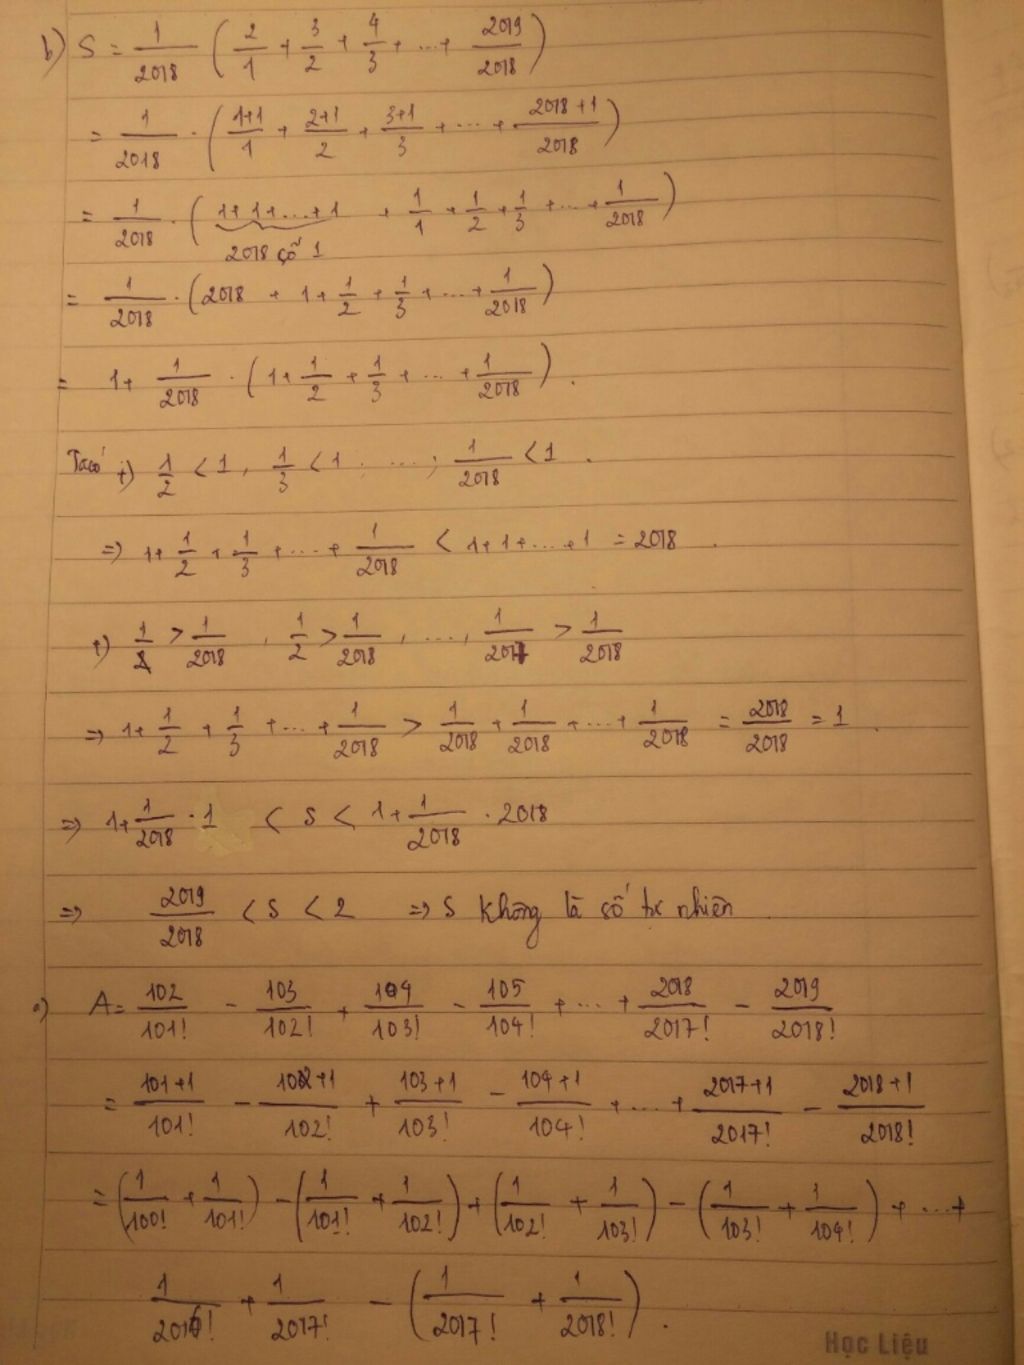 b) S = 1/2018 (2/1 + 3/2 + 4/3 + ... + 2019/2018)
= 1/2018 . (1+1/1 + 2+1/2 + 3+1/3 + ... + 2018+1/2018)
= 1/2018 . (1+1+...+1 + 1/1 + 1/2 + 1/3 + ... + 1/2018)
2018 số 1
= 1/2018 . (2018 + 1 + 1/2 + 1/3 + ... + 1/2018)
= 1 + 1/2018 . (1 + 1/2 + 1/3 + ... + 1/2018) .
Ta có +) 1/2 < 1, 1/3 < 1 ; ... ; 1/2018 < 1 .
=) 1 + 1/2 + 1/3 + ... + 1/2018 < 1+1+...+1 = 2018 .
+) 1/1 > 1/2018 , 1/2 > 1/2018 , ..., 1/2017 > 1/2018
=> 1 + 1/2 + 1/3 + ... + 1/2018 > 1/2018 + 1/2018 + ... + 1/2018 = 2018/2018 = 1 .
=> 1 + 1/2018 . 1 < S < 1 + 1/2018 . 2018
=> 2019/2018 < S < 2 => S không là số tự nhiên
a) A = 102/101! - 103/102! + 104/103! - 105/104! + ... + 2018/2017! - 2019/2018!
= 101+1/101! - 102+1/102! + 103+1/103! - 104+1/104! + ... + 2017+1/2017! - 2018+1/2018!
= (1/100! + 1/101!) - (1/101! + 1/102!) + (1/102! + 1/103!) - (1/103! + 1/104!) + ... +
1/2016! + 1/2017! - (1/2017! + 1/2018!) .
Học Liệu